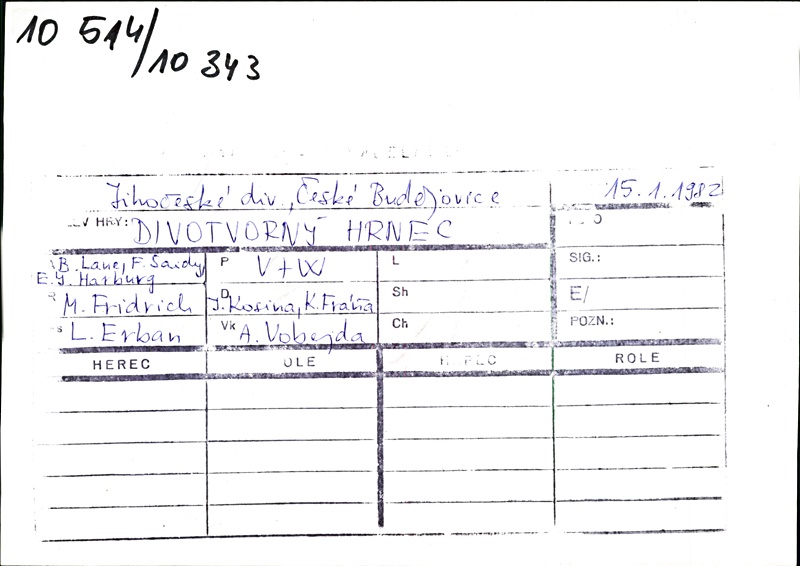 10 514/10 343
Jihočeské div., České Budějovice 15.1.1982
V HRY: DIVOTVORNÝ HRNEC
B. Lane, F. Saidy, P V+W L SIG.:
E. Y. Harburg
M. Fridrich D J. Kosina, K. Fráňa Sh E/
s L. Erban Vk A. Vobejda Ch POZN.:
HEREC OLE ROLE